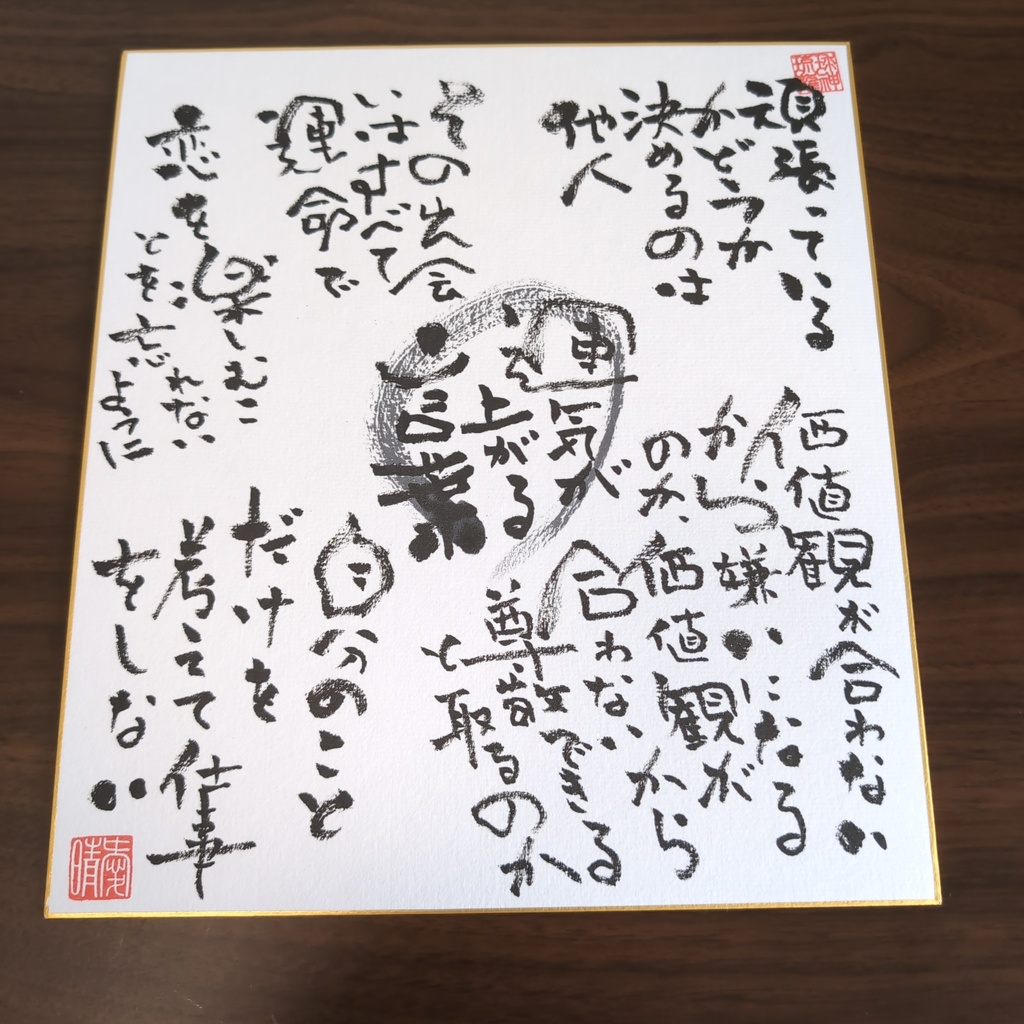 頑張っている
かどうか
決めるのは
他人
その出会
いはすべて
運命で
恋を楽しむこ
とを忘れない
ように
運気が
上がる
言葉
価値観が合わない
から嫌いになる
のか、価値観が
合わないから
尊敬できる
と取るのか
自分のこと
だけを
考えて仕事
をしない